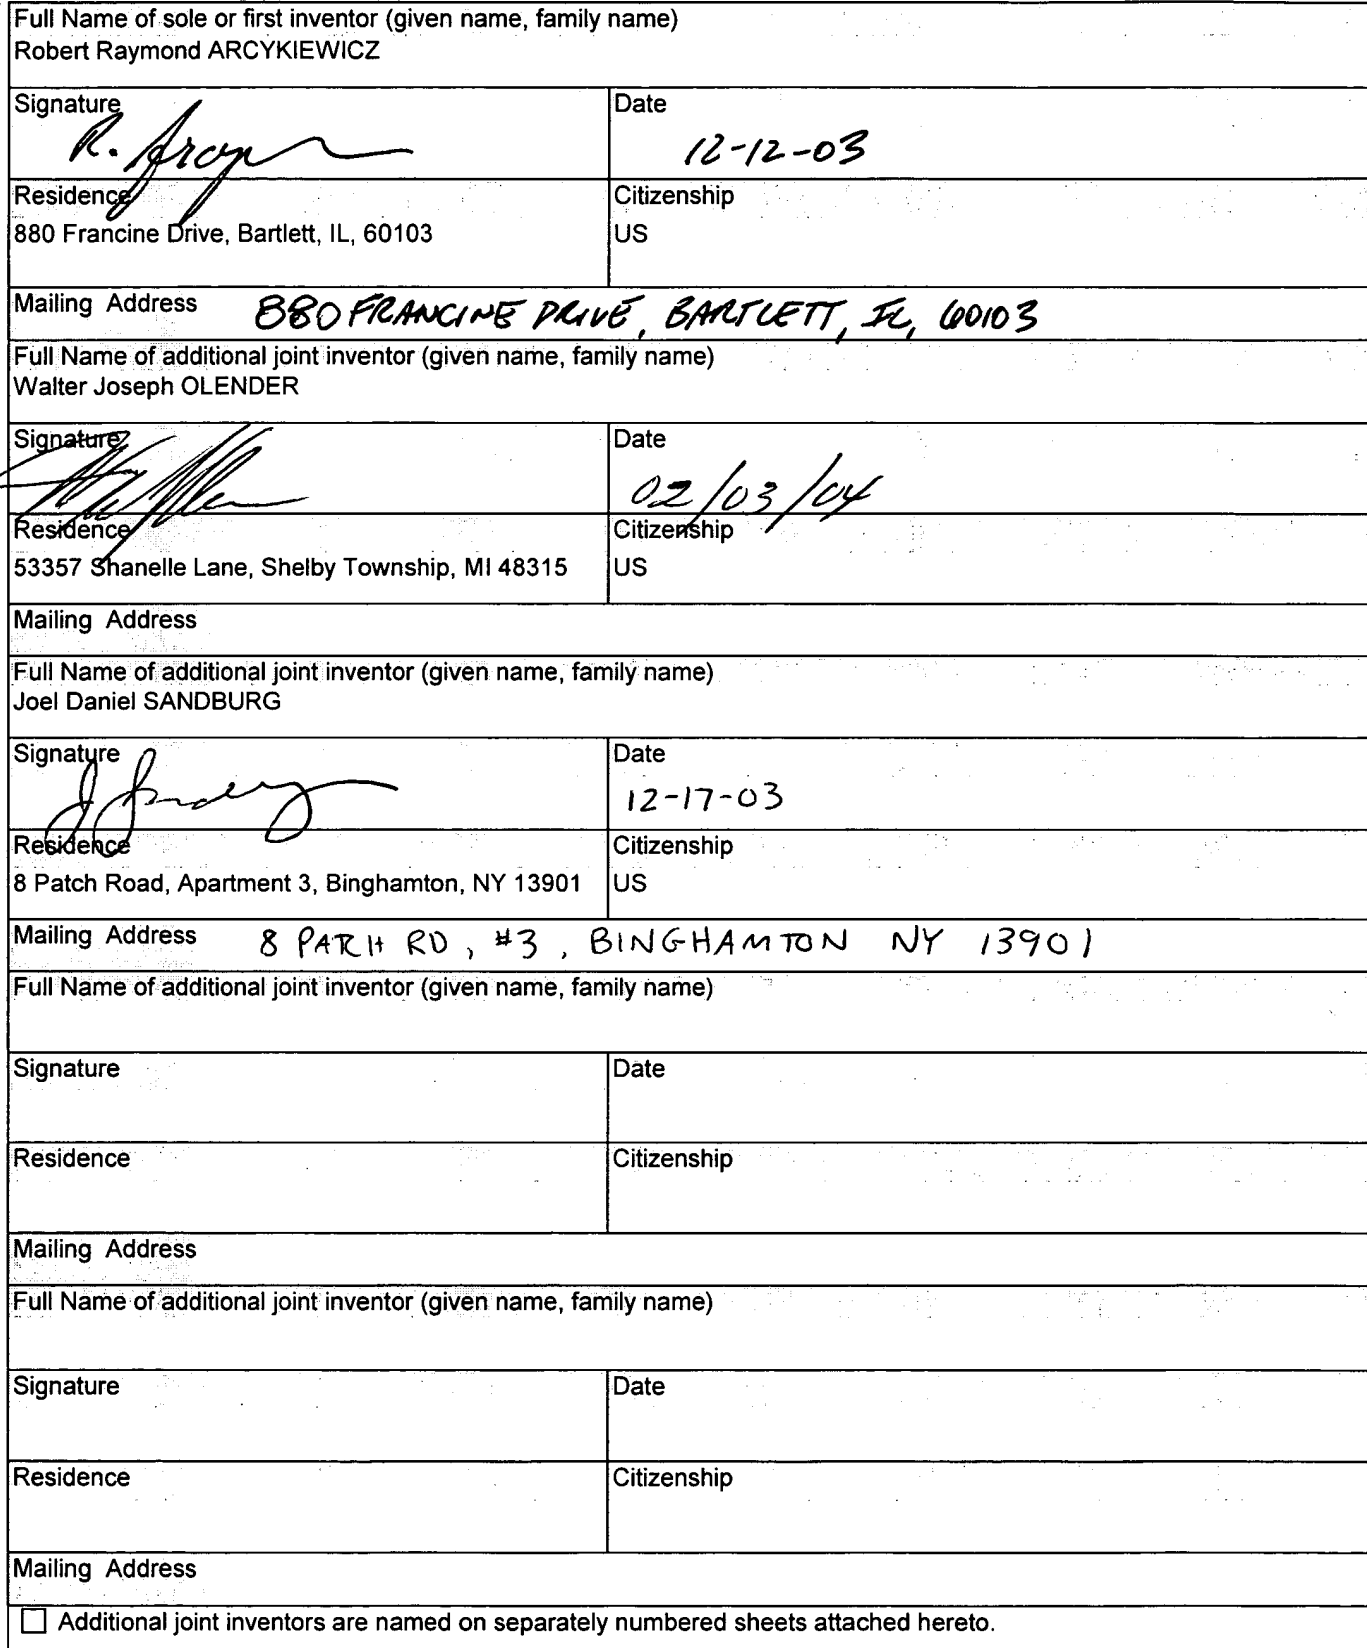 Full Name of sole or first inventor (given name, family name)
Robert Raymond ARCYKIEWICZ
Signature Date
R. 12-12-03
Residence Citizenship
880 Francine Drive, Bartlett, IL, 60103 US
Mailing Address 880 FRANCINE DRIVE, BARTLETT, IL, 60103
Full Name of additional joint inventor (given name, family name)
Walter Joseph OLENDER
Signature Date
02/03/04
Residence Citizenship
53357 Shanelle Lane, Shelby Township, MI 48315 US
Mailing Address
Full Name of additional joint inventor (given name, family name)
Joel Daniel SANDBURG
Signature Date
J 12-17-03
Residence Citizenship
8 Patch Road, Apartment 3, Binghamton, NY 13901 US
Mailing Address 8 PATCH RD, #3, BINGHAMTON NY 13901
Full Name of additional joint inventor (given name, family name)
Signature Date
Residence Citizenship
Mailing Address
Full Name of additional joint inventor (given name, family name)
Signature Date
Residence Citizenship
Mailing Address
☐ Additional joint inventors are named on separately numbered sheets attached hereto.